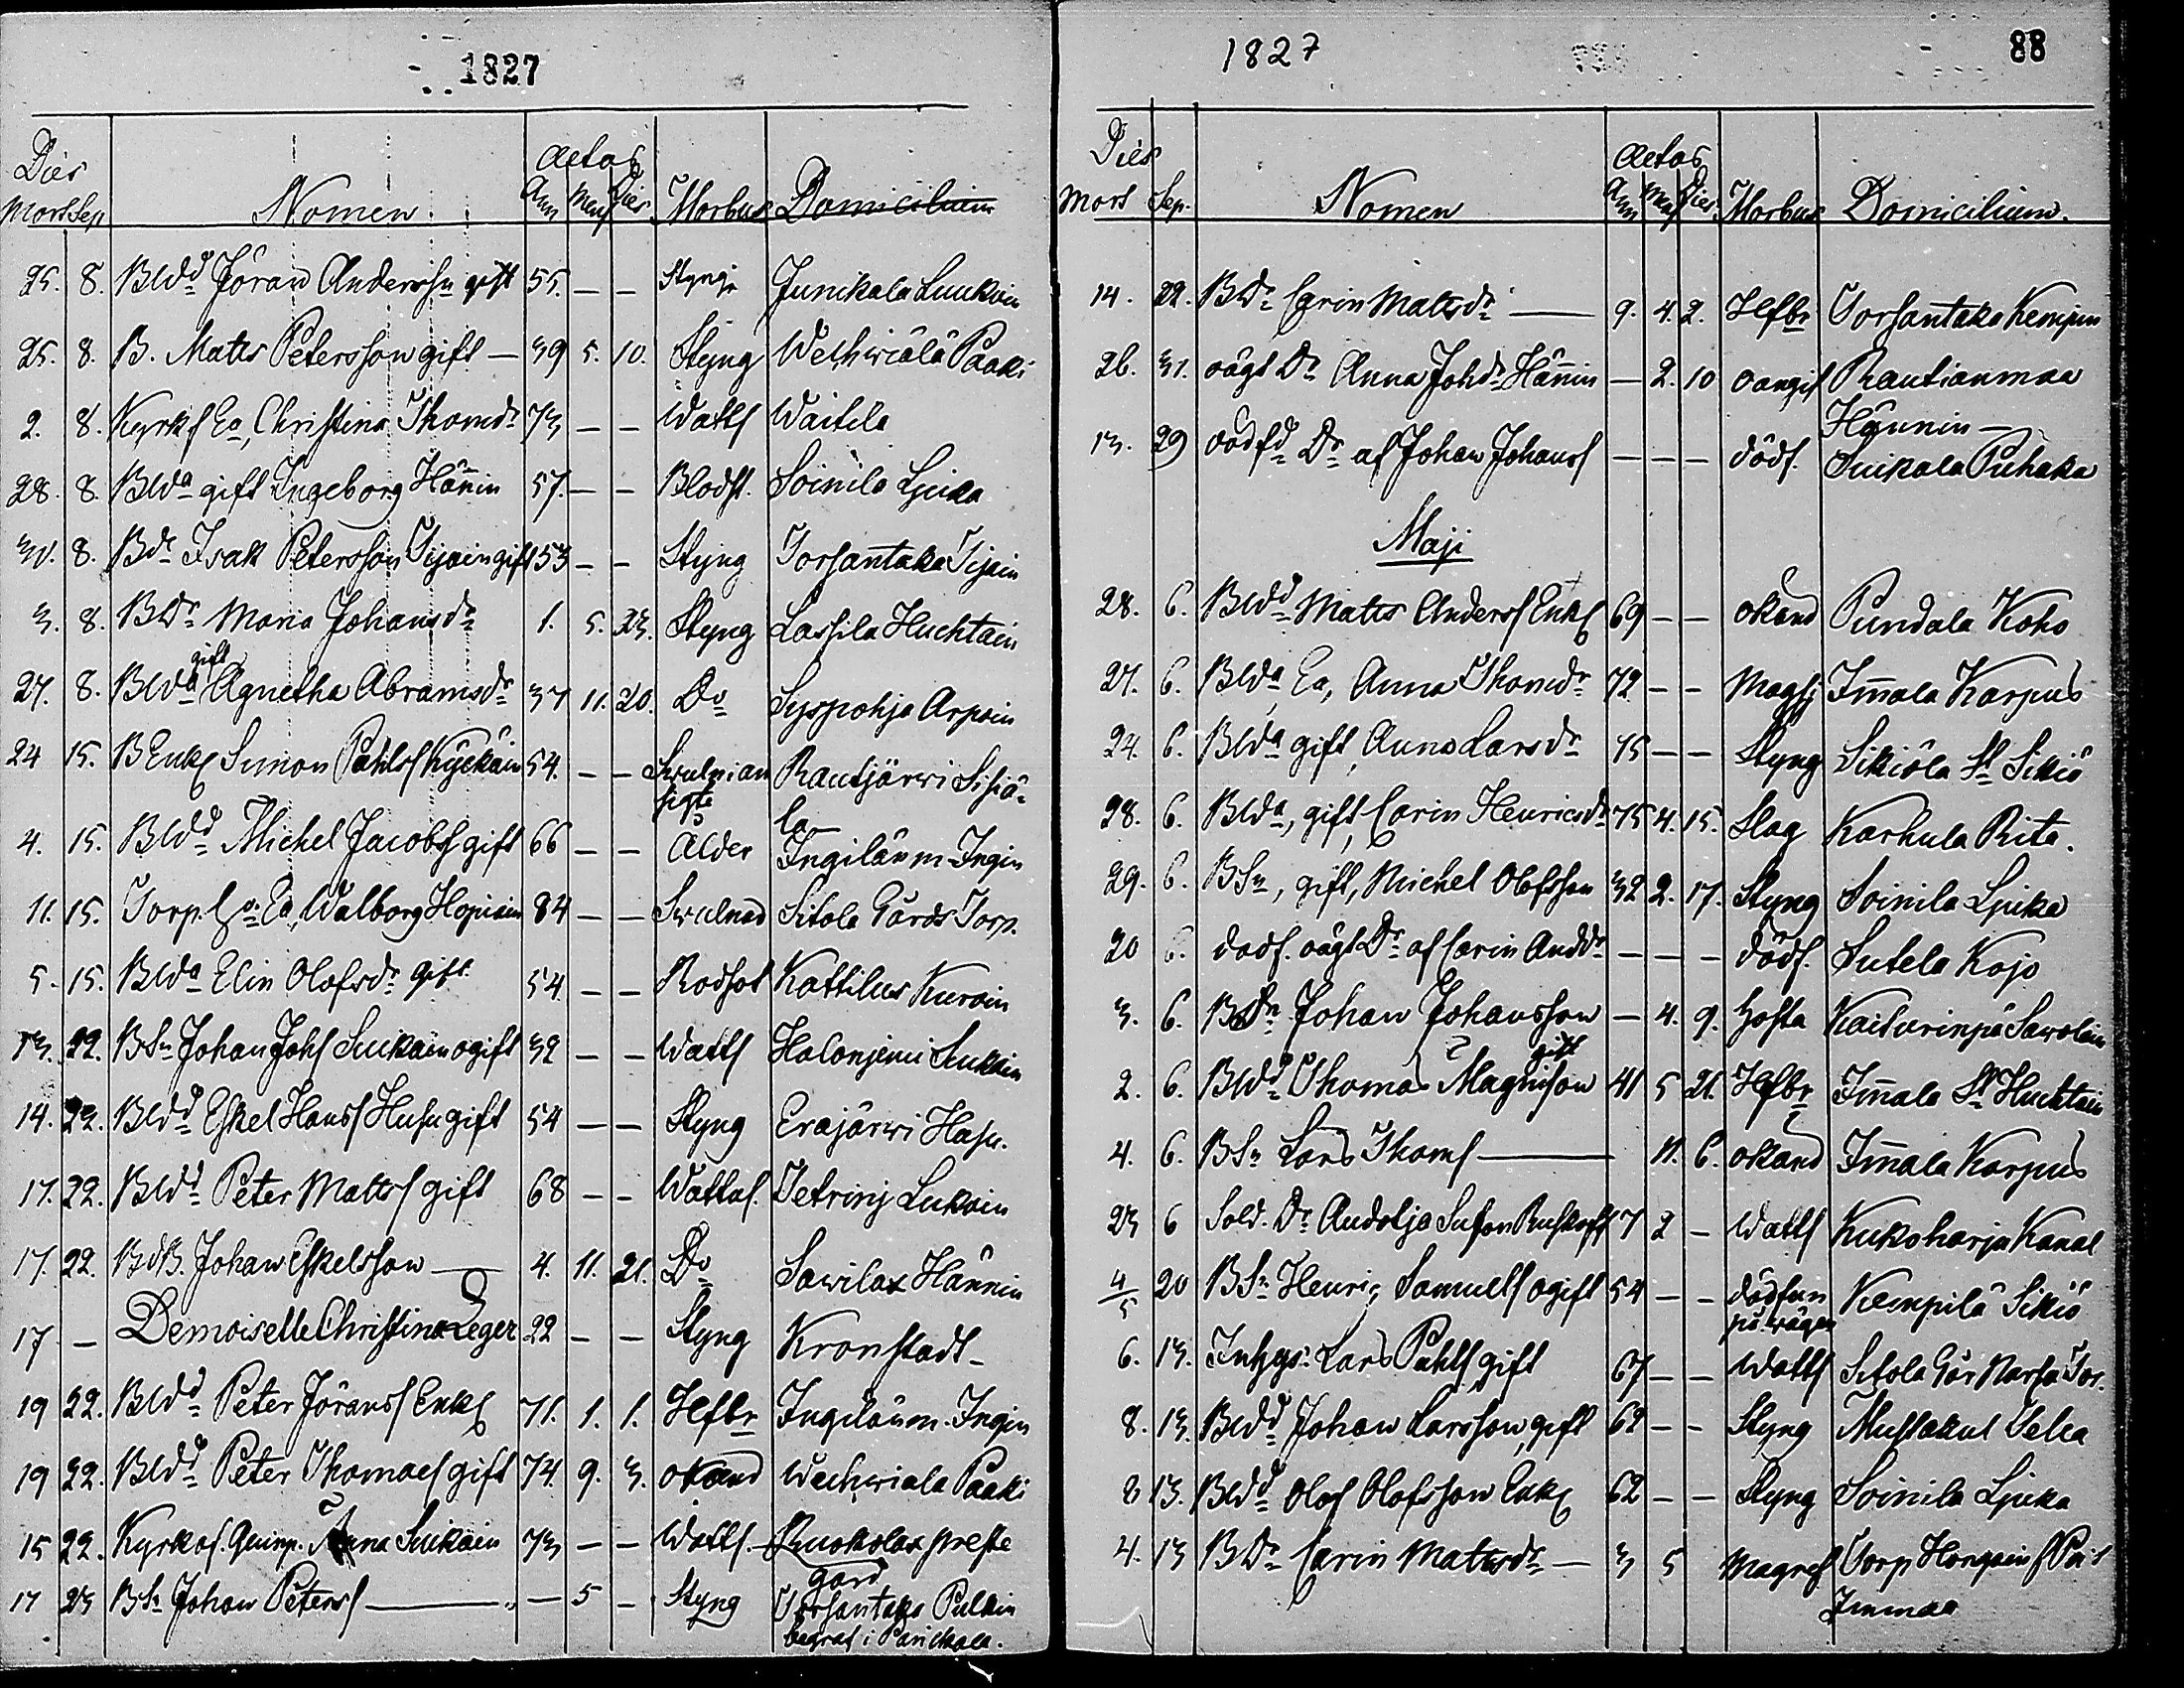 1827
Dies Aetas
Mors Sep. Nomen Ann Mens Dies Morbus Domicilium
25. 8. Bldd Jöran Anderssn gift 55. — — Styng Junikala Luukain
25. 8. B. Matts Petersson gift — 39 5. 10. Styng Wechwiälä Paaki
2. 8. Kyrkf Ea, Christina Thomdr 73 — — Watts Waitila
28. 8. Blda gift Ingeborg Hänin 57. — — Blodst. Soinila Ljuka
30. 8. Bdr Isak Petersson Tijain gift 53 — — Styng Torsantaka Tijain
3. 8. BDr Maria Johansdr 1. 5. 23. Styng Lassila Huchtain
gift
27. 8. Blda Agnetha Abramsdr 37 11. 20. Do Syspohja Arpain
24 15. B Enkl Simon Påhls Kyckäin 54. — — Swulnian Rautjärwi Sisiä-
sigte la
4. 15. Bldd Michel Jacobs gift 66 — — Alder Ingiläinm Ingin
11. 15. Torp Ea, Walborg Hopiain 84 — — Swulnad Sitola Gårds Torp.
5. 15. Blda Elin Olofsdr gift 54 — — Rodsot Kattilus Kurain
13. 22. BSn Johan Johs Suikain ogift 32 — — Watts Halonjemi Suikain
14. 22. Bldd Eskel Hans Husu gift 54 — — Styng Eräjärwi Hasu.
17. 22. Bldd Peter Matts gift 68 — — Wattus. Petrinj Lukain
17. 22. BdB. Johan Eskelsson — 4. 11. 21. Do Sawilax Hännin
17 — Demoiselle Christina Leger 22 — — Styng Kronstadt —
19 22. Bldd Peter Jörans Enkl 71. 1. 1. Hefbr Ingiläinm. Ingin
19 22. Bldd Peter Thomaes gift 74. 9. 3. okänd Wechwiala Paaki
15 22. Kyrkof. Anna Suikain 73 — — Watts. Ruokolax preste
gård
17 23 BSn Johan Peters — — 5 — Styng Torsantaka Pulkin
begraf i Parickala.
1827 88
Dies Aetas
Mors Sep. Nomen Ann Mens Dies Morbus Domicilium.
14. 22. BDr Carin Mattsdr — 9. 4. 2. Hefbr Torsantaka Kempin
26. 31. oägt Dr Anna Johdr Hänin — 2. 10 oangif Rautianmaa
Hännin —
13. 29 Dr af Johan Johans — — — dödf. Suikala Puhaka
Maji
28. 6. Bldd Matts Anders Enkl 69 — — okänd Pundala Koho
27. 6. Blda Ea, Anna Thomdr 72 — — Magsj Imala Karpus
24. 6. Blda gift, Anna Larsdr 75 — — Styng Sikiöla St Sikiö
28. 6. Blda, gift, Carin Henricsdr 75 4. 15. Slag Karhula Rita.
29. 6. BSn, gift, Michel Olofsson 32 2. 17. Styng Soinila Ljuka
20 6. dödf. oägt Dr af Carin Anddr — — — dödf. Sutela Kojo
3. 6. BSn Johan Johansson — 4. 9. hosta Kaiturinpä Sawolain
gift
2. 6. Bldd Thomas Magnison 41 5 21. Hefbr Imala St Huchtain
4. 6. BSn Lars Thoms — 11. 6. okänd Imala Karpus
23 6 Sold. Dr Audotja 7 2 — Watts Kukoharju Kanal
4/5 20 BSn Henric Samuels ogift 54 — — dödfun Kempilä Sikiö
på wägen
6. 13. Inhys. Lars Påhls gift 67 — — Watts Sitola Går Tor.
8. 13. Bldd Johan Larsson, gift 62 — — Styng Mustakul Telia
8 13. Bldd Olof Olofsson Enkl 62 — — Styng Soinila Ljuka
4. 13 BDr Carin Mattsdr — 3 5 Magref Torp Honpain
Immaa